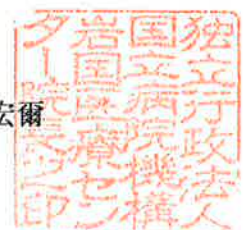 宏爾
独立行政法人
国立病院機構
岩国医療セン
ター院長之印